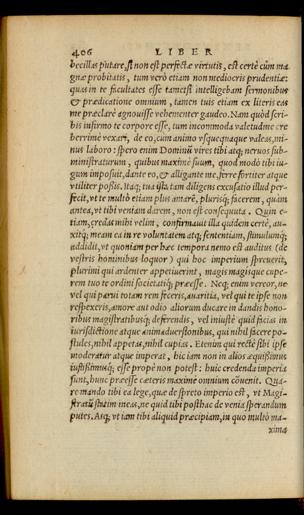 406 LIBER
becillas putare, si non est perfectæ virtutis, est certè cùm ma
gnæ probitatis, tum verò etiam non mediocris prudentiæ:
quas in te facultates esse tametsi intelligebam sermonibus
& prædicatione omnium, tamen tuis etiam ex literis eas
me præclarè agnouisse vehementer gaudeo. Nam quòd scri-
bis infirmo te corpore esse, tum incommoda valetudine cre
berrimè vexari, de eo, cùm animo vsquequaque valeas, mi-
nus laboro: spero enim Dominũ vires tibi atq; neruos sub-
ministraturum, quibus maximè suum, quod modò tibi iu-
gum imposuit, dante eo, & alligante me, ferre fortiter atque
vtiliter poßis. Itaq; tua ista tam diligens excusatio illud per-
fecit, vt te multò etiam plus amarē, plurisq; facerem, quàm
antea, vt tibi veniam darem, non est consequuta. Quin e-
tiam, credas mihi velim, confirmauit illa quidem certè, au-
xitq; meam ea in re voluntatem atq; sententiam, stimulumq;
addidit, vt quoniam per hæc tempora nemo est auditus (de
vestris hominibus loquor) qui hoc imperium spreuerit,
plurimi qui ardenter appetiuerint, magis magisque cupe-
rem tuo te ordini societatiq; præesse. Neq; enim vereor, ne
vel qui parui totam rem feceris, auaritia, vel qui te ipse non
respexeris, amore aut odio aliorum ducare in dandis hono-
ribus magistratibusq; deferendis, vel iniustè quid facias in
iurisdictione atque animaduersionibus, qui nihil facere po-
stules, nihil appetas, nihil cupias. Etenim qui rectè sibi ipse
moderatur atque imperat, hic iam non in alios æquißimus
iustißimusq; esse propè non potest: huic credenda imperia
sunt, hunc præesse cæteris maximè omnium cõuenit. Qua-
re mando tibi ea lege, quæ de spreto imperio est, vt Magi-
stratũ statim ineas, ne quid tibi posthac de venia sperandum
putes. Atq; vt iam tibi aliquid præcipiam, in quo multò ma-
xima